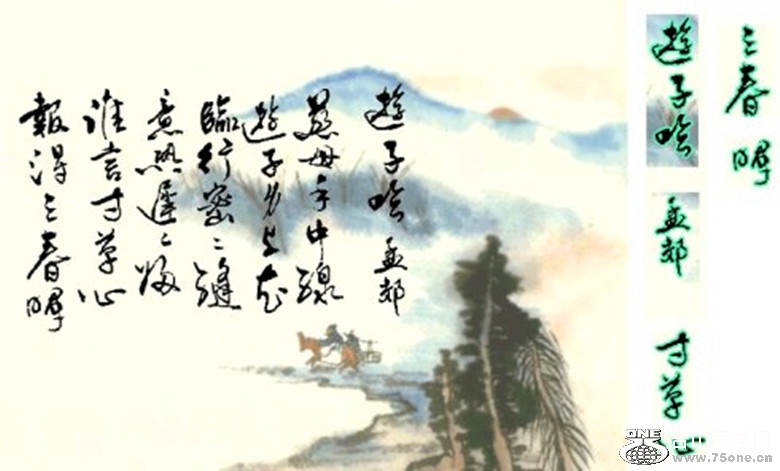 遊子吟 孟郊
慈母手中線
遊子身上衣
臨行密々縫
意恐遲々歸
誰言寸草心
報得三春暉
三春暉
遊子吟
孟郊
寸草心
ONE
www.75one.cn